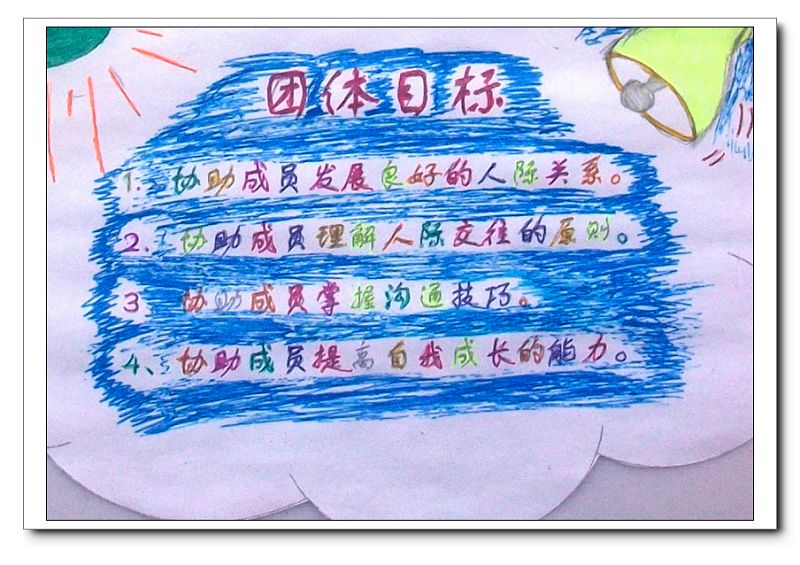 团体目标
1、协助成员发展良好的人际关系。
2、协助成员理解人际交往的原则。
3、协助成员掌握沟通技巧。
4、协助成员提高自我成长的能力。